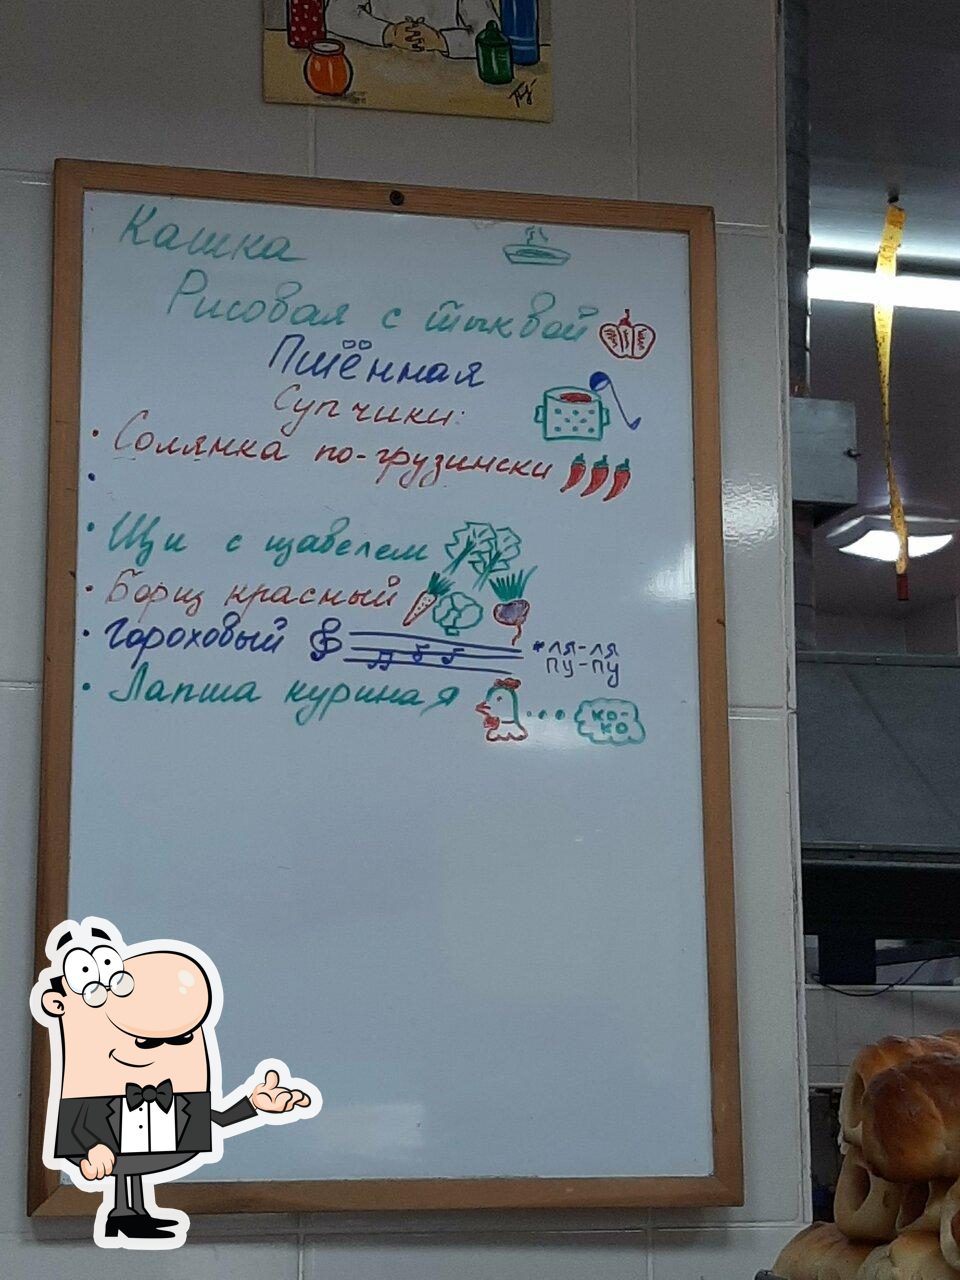 Кашка
Рисовая с тыквой
Пшённая
Супчики:
• Солянка по-грузински
•
• Щи с щавелем
• Борщ красный
• Гороховый *ля-ля
пу-пу
• Лапша куриная ко-
ко